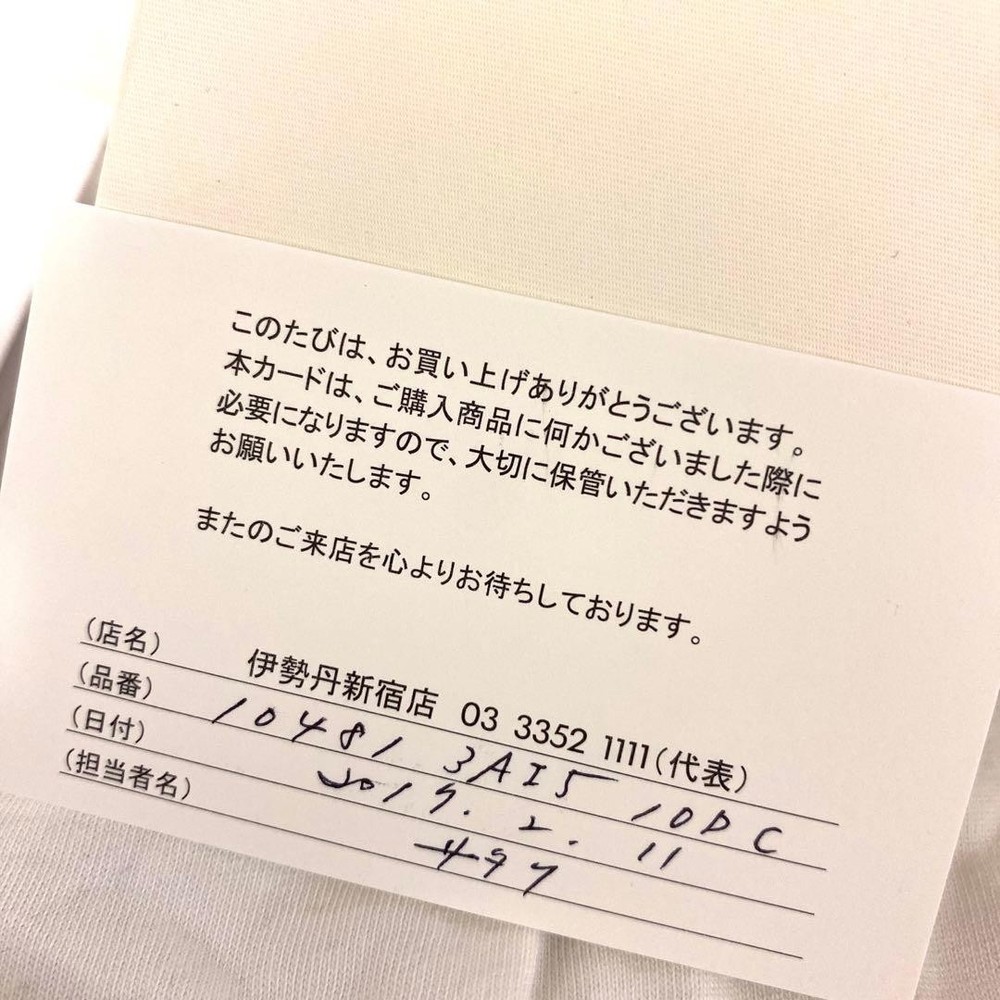 このたびは、お買い上げありがとうございます。
本カードは、ご購入商品に何かございました際に
必要になりますので、大切に保管いただきますよう
お願いいたします。
またのご来店を心よりお待ちしております。
(店名) 伊勢丹新宿店 03 3352 1111(代表)
(品番) 10481 3AI5 10DC
(日付) 2019. 2. 11
(担当者名)